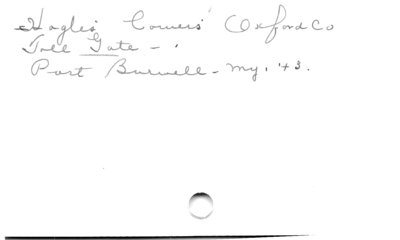 Hagles Corners Oxford Co
Toll Gate -
Port Burwell - my. '43.